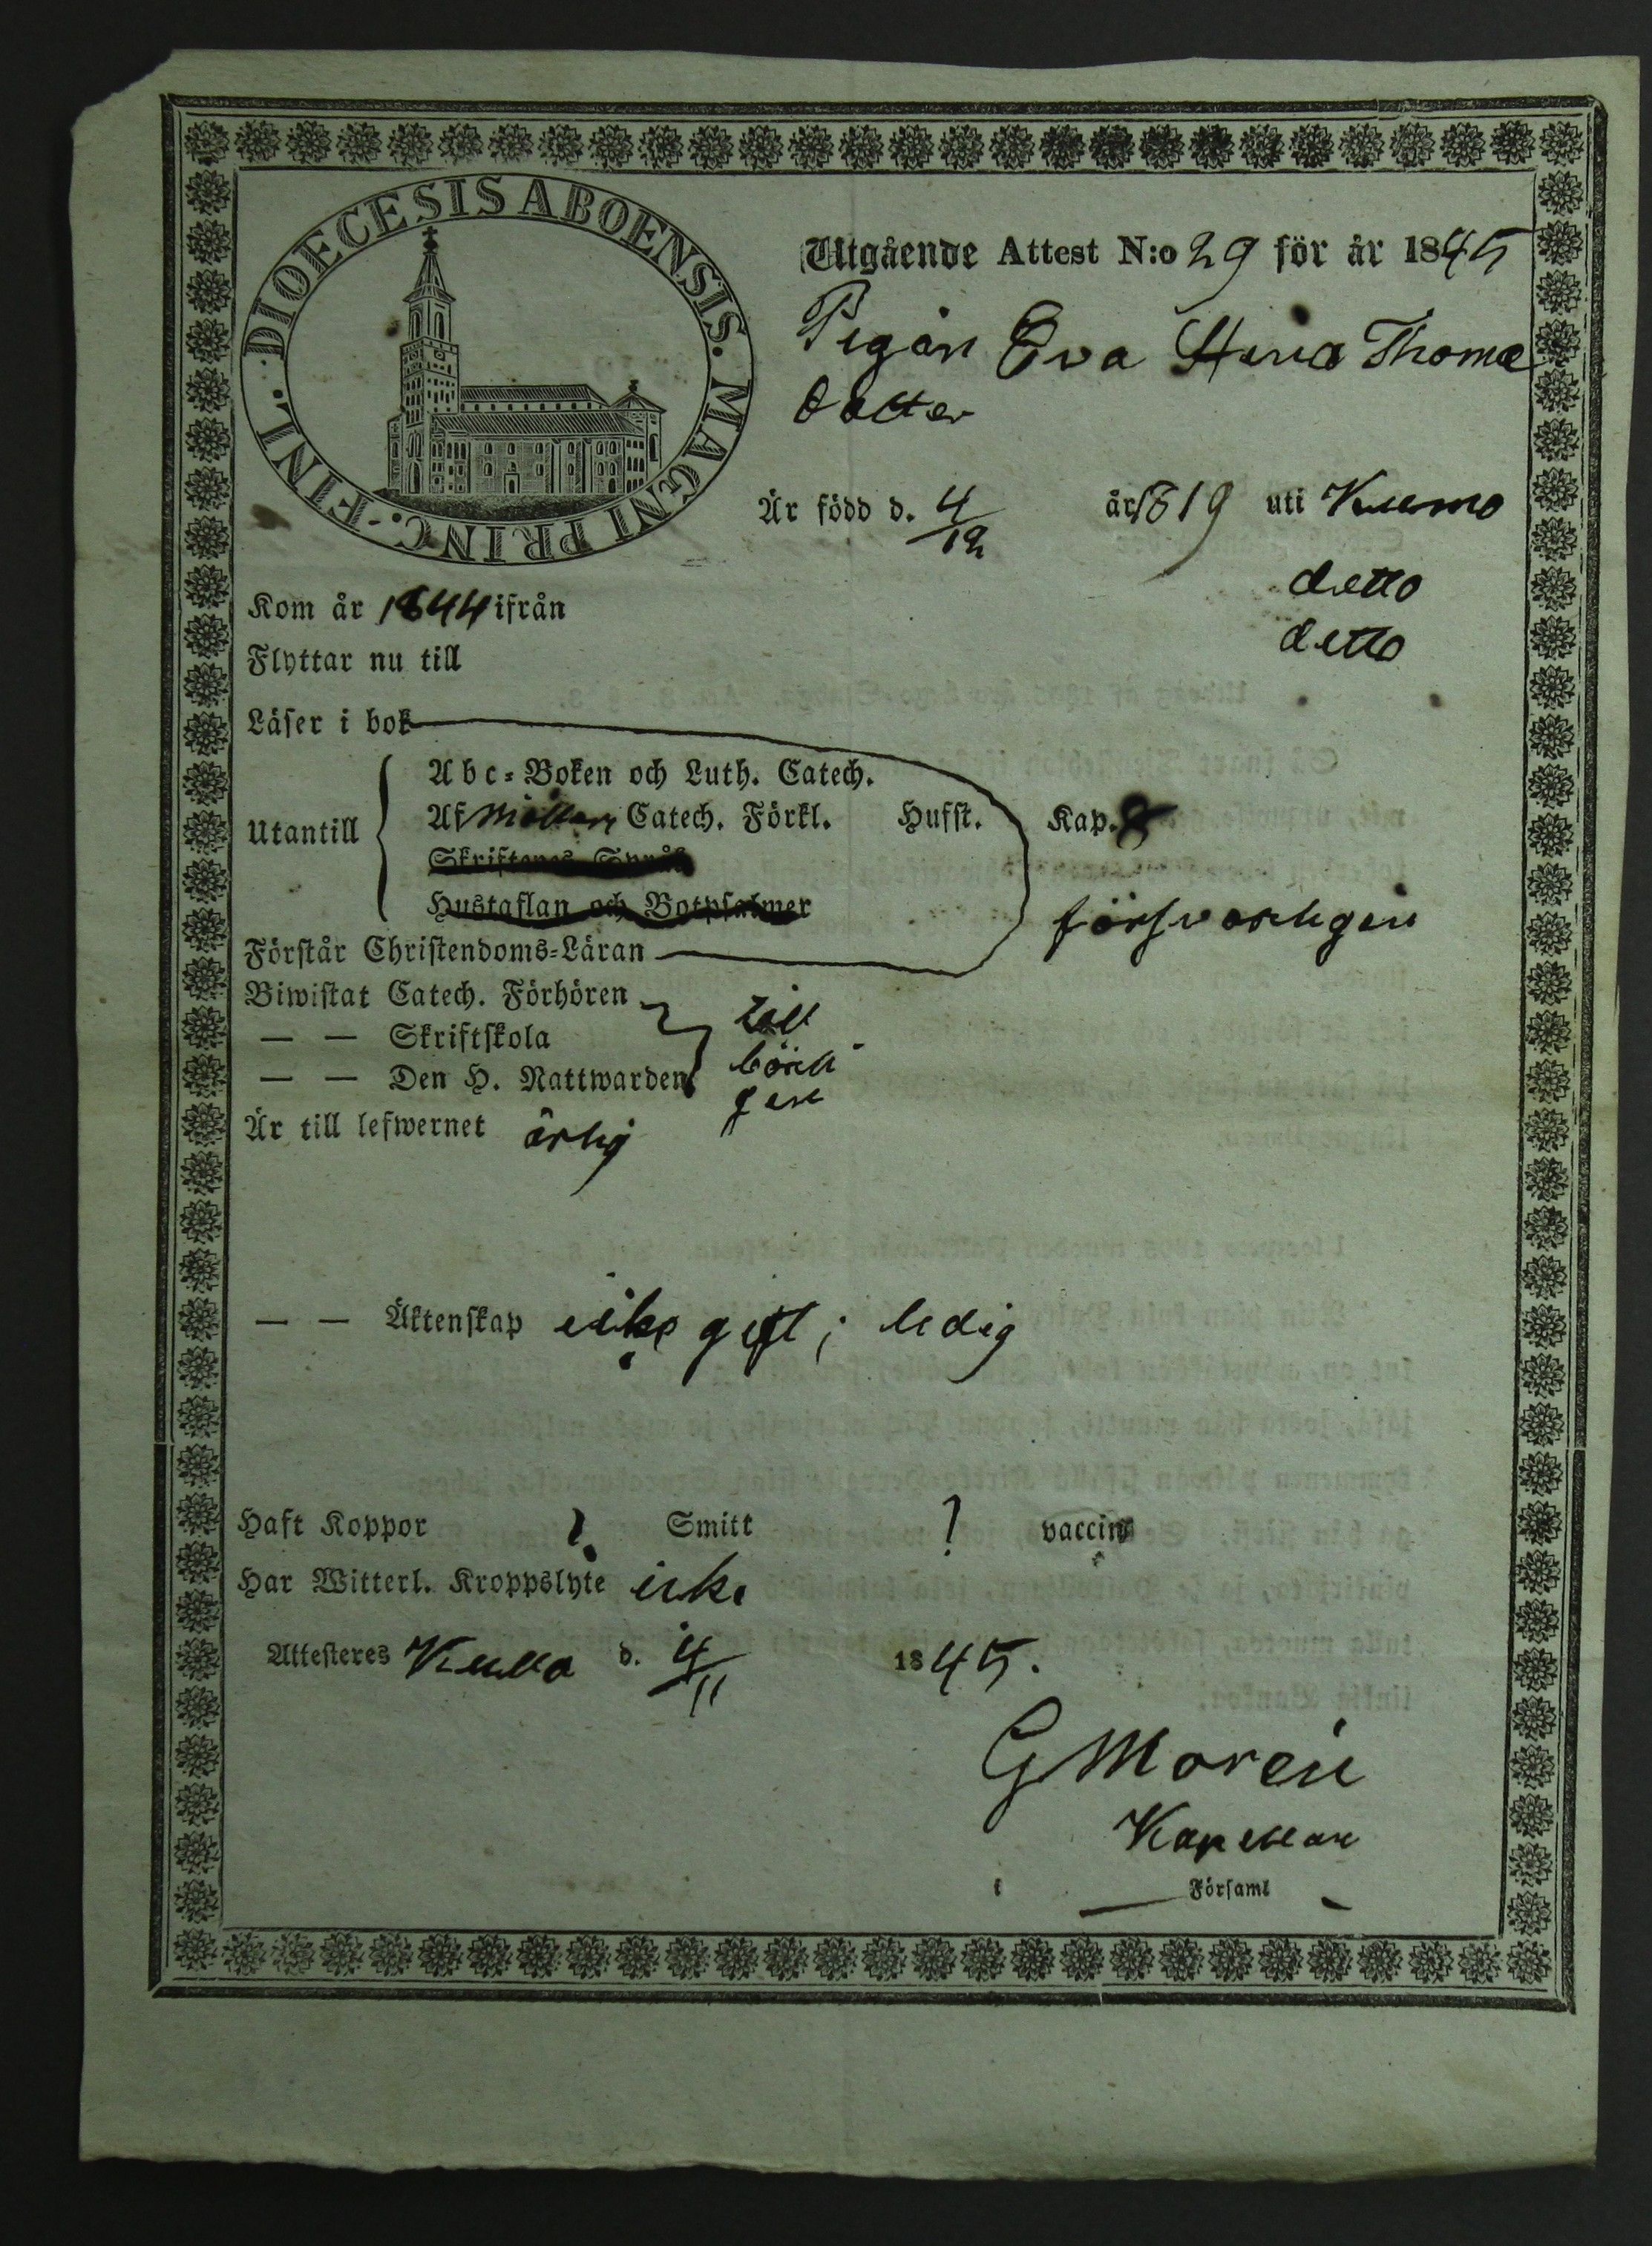 DIOECESIS ABOENSIS. MAGNI PRINC. FINL.
Utgående Attest N:o 29 för år 1845
Pigan Eva Stina Thomæ
dotter
Är född d. 4/12 år 1819 uti Kumo
Kom år 1844 ifrån detto
Flyttar nu till detto
Läser i bok
Utantill
Abc-Boken och Luth. Catech.
Af Möllers Catech. Förkl. Hufst. Kap. 8
Skriftenes Språk
Hustaflan och Botpsalmer
försvarligen
Förstår Christendoms-Läran
Biwistat Catech. Förhören
— — Skriftskola
— — Den H. Nattwarden
till
börli
gen
Är till lefwernet ärlig
— — Äktenskap icke gift; ledig
Haft Koppor ? Smitt ? vaccin
Har Witterl. Kroppslyte icke
Attesteres Kulla d. 4/11 1845.
G Moren
Kapellan
i Församl